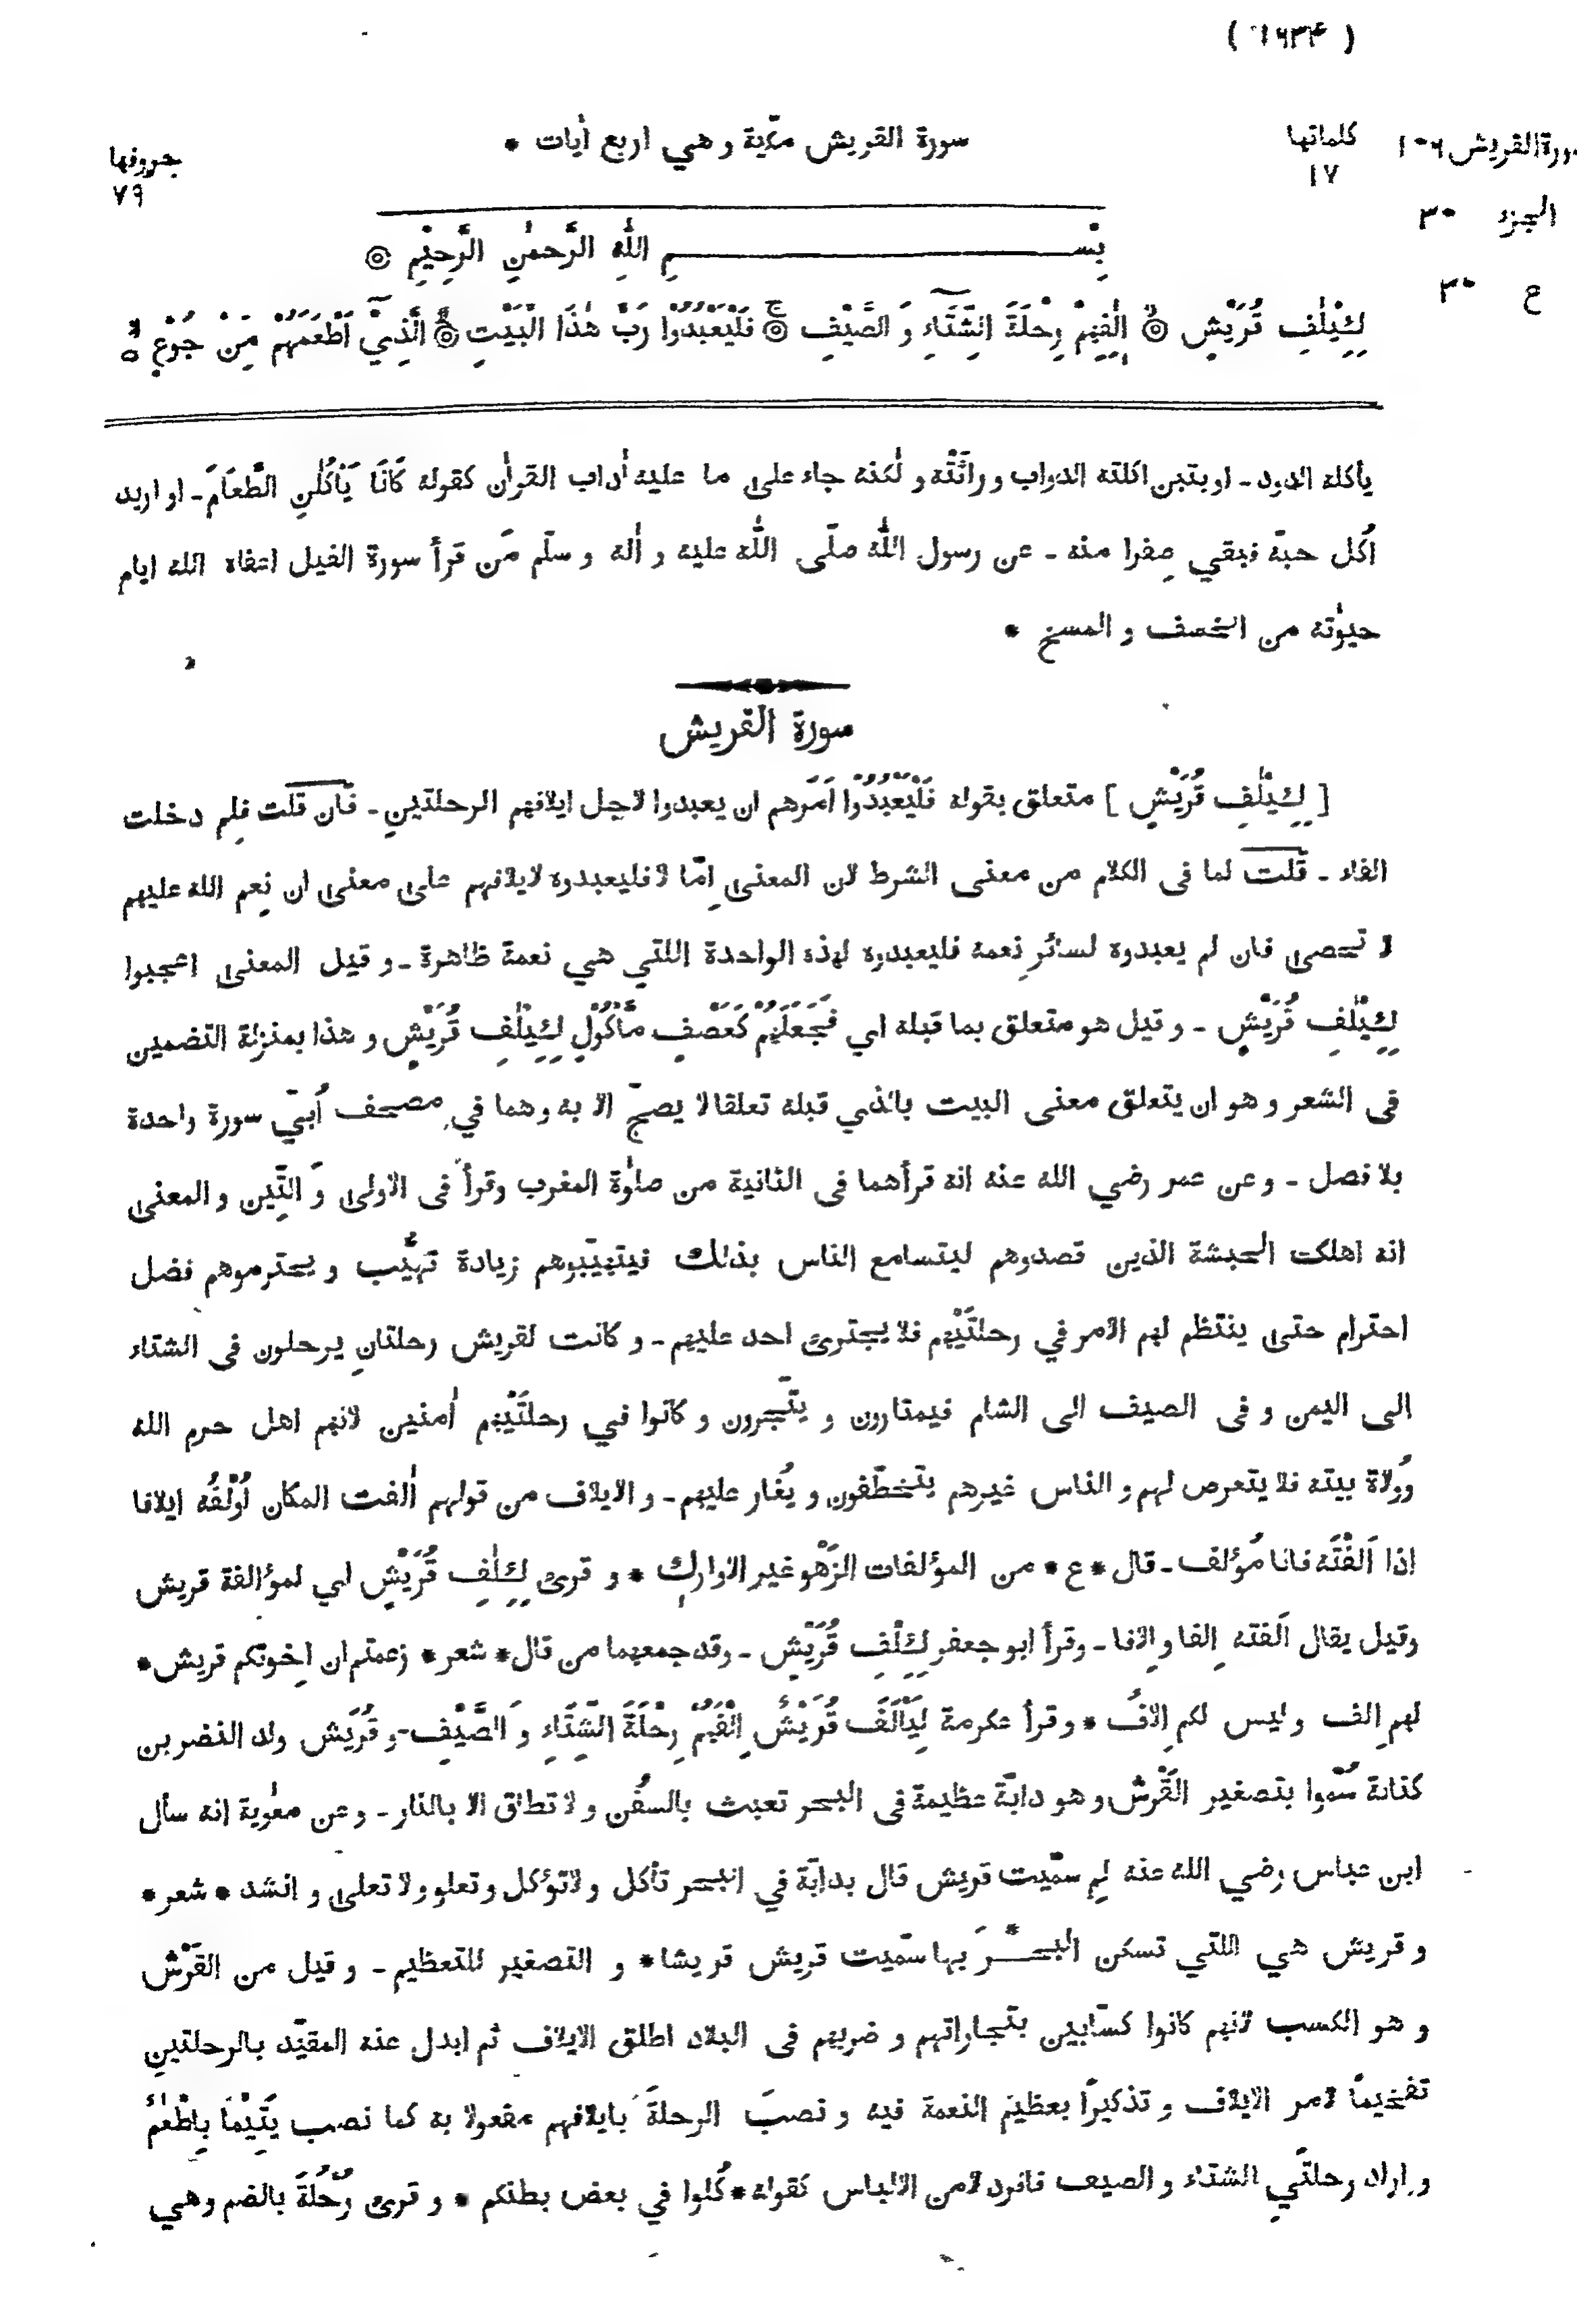 ( ١٦٣٤ )
سورة القريش ١٠٦
الجزء ٣٠
ع ٣٠
كلماتها
١٧
سورة القريش مكّية و هي اربع أيات *
حروفها
٧٩
بِسْمِ اللّٰهِ الرَّحمٰنِ الرَّحِيْمِ ۞
لِاِيْلٰفِ قُرَيْشٍ ۞ اٖلٰفِهِمْ رِحْلَةَ الشِّتَآءِ وَ الصَّيْفِ ۞ فَلْيَعْبُدُوْا رَبَّ هٰذَا الْبَيْتِ ۞ الَّذِيْٓ اَطْعَمَهُمْ مِّنْ جُوْعٍ
يأكله الدود ـ او بتبن اكلته الدواب و راثَتْه و لٰكنه جاء على ما عليه أداب القرأن كقوله كَانَا يَأْكُلٰنِ الطَّعَامَ ـ او اريد
اُكل حبّه فبقي صِفرا منه ـ عن رسول اللّٰه صلّى اللّٰه عليه و أله و سلّم مَن قرأ سورة الفيل اعفاه الله ايام
حيٰوته من الخسف و المسخ *
سورة القريش
[ لِاِيْلٰفِ قُرَيْشٍ ] متعلق بقوله فَلْيَعْبُدُوْا اَمَرهم ان يعبدوا لاجل ايلافهم الرحلتين ـ فان قلت فلِم دخلت
الفاء ـ قلت لما فى الكلام من معنى الشرط لان المعنى اِمّا لا فليعبدوه لايلافهم على معنى ان نِعم الله عليهم
لا تحصى فان لم يعبدوه لسائر نِعمه فليعبدوه لهذه الواحدة اللتي هي نعمة ظاهرة ـ و قيل المعنى اعجبوا
لِاِيْلٰفِ قُرَيْشٍ ـ و قيل هو متعلق بما قبله اي فَجَعَلَهُمْ كَعَصْفٍ مَّأْكُوْلٍ لِاِيْلٰفِ قُرَيْشٍ و هذا بمنزلة التضمين
فى الشعر و هو ان يتعلق معنى البيت بالذي قبله تعلقا لا يصحّ الا به و هما في مصحف اُبيّ سورة واحدة
بلا فصل ـ و عن عمر رضي الله عنه انه قرأهما فى الثانية من صلٰوة المغرب وقرأ فى الاولى وَ التِّين و المعنى
انه اهلكت الحبشة الذين قصدوهم ليتسامع الناس بذلك فيتهيّبوهم زيادة تهيُّب و يحترموهم فضل
احترام حتى ينتظم لهم الامر في رحلتَيْهم فلا يجترئ احد عليهم ـ و كانت لقريش رحلتانِ يرحلون فى الشتاء
الى اليمن و فى الصيف الى الشام فيمتارون و يتّجرون و كانوا في رحلتَيْهم أمنين لانهم اهل حرم الله
ووُلاة بيته فلا يتعرض لهم و الناس غيرهم يتخطّفون و يُغار عليهم ـ و الايلاف من قولهم اٰلفت المكان اُوْلفُه ايلافا
اذا اَلَفْتَه فانا مُؤلف ـ قال * ع * من المؤلفات الزَهْو غير الاوارك * و قرئ لِاِلٰفِ قُرَيْشٍ اي لمؤالفة قريش
وقيل يقال اَلفته اِلفا و اِلافا ـ وقرأ ابو جعفر لِاِلْفِ قُرَيْشٍ ـ وقد جمعهما من قال * شعر * زعمتم ان اِخوتكم قريش *
لهم اِلف و ليس لكم اِلافُ * و قرأ عكرمة لِيَأْلَفَ قُرَيْشٌ اِلْفَهُمْ رِحْلَةَ الشِّتَاءِ وَ الصَّيْفِ ـ و قُرَيش ولد النضر بن
كنانة سُمّوا بتصغير القَرْش و هو دابّة عظيمة فى البحر تعبث بالسفُن و لا تطاق الا بالنار ـ و عن معٰوية انه سأل
ابن عباس رضي الله عنه لِم سمّيت قريش قال بدابّة في البحر تأكل و لا تؤكل و تعلو و لا تعلى و انشد * شعر *
و قريش هي اللتي تسكن البحـرَ * بها سمّيت قريش قريشا * و التصغير للتعظيم ـ و قيل من القَرْش
و هو الكسب لانهم كانوا كسّابين بتجاراتهم و ضربهم فى البلاد اطلق الايلاف ثم ابدل عنه المقيّد بالرحلتينِ
تفخيماً لامر الايلاف و تذكيراً بعظيم النعمة فيه و نصبَ الرحلةَ بايلافهم مفعولا به كما نصب يَتِيْمًا بِاِطْعٰمٌ
و اراد رحلتَي الشتاء و الصيف فافرد لامن الالباس كقوله * كُلوا في بعض بطنكم * و قرئ رُحْلَةَ بالضم وهي